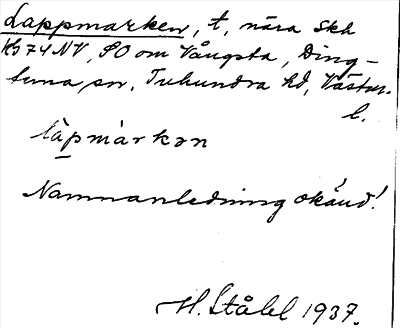 Lappmarken, t, nära skh
Hs 74 NV, SO om Vångsta, Ding-
tuna sn, Tuhundra hd, Västm.
l.
làpmàrkən
Namnanledning okänd!
H. Ståhl 1937.